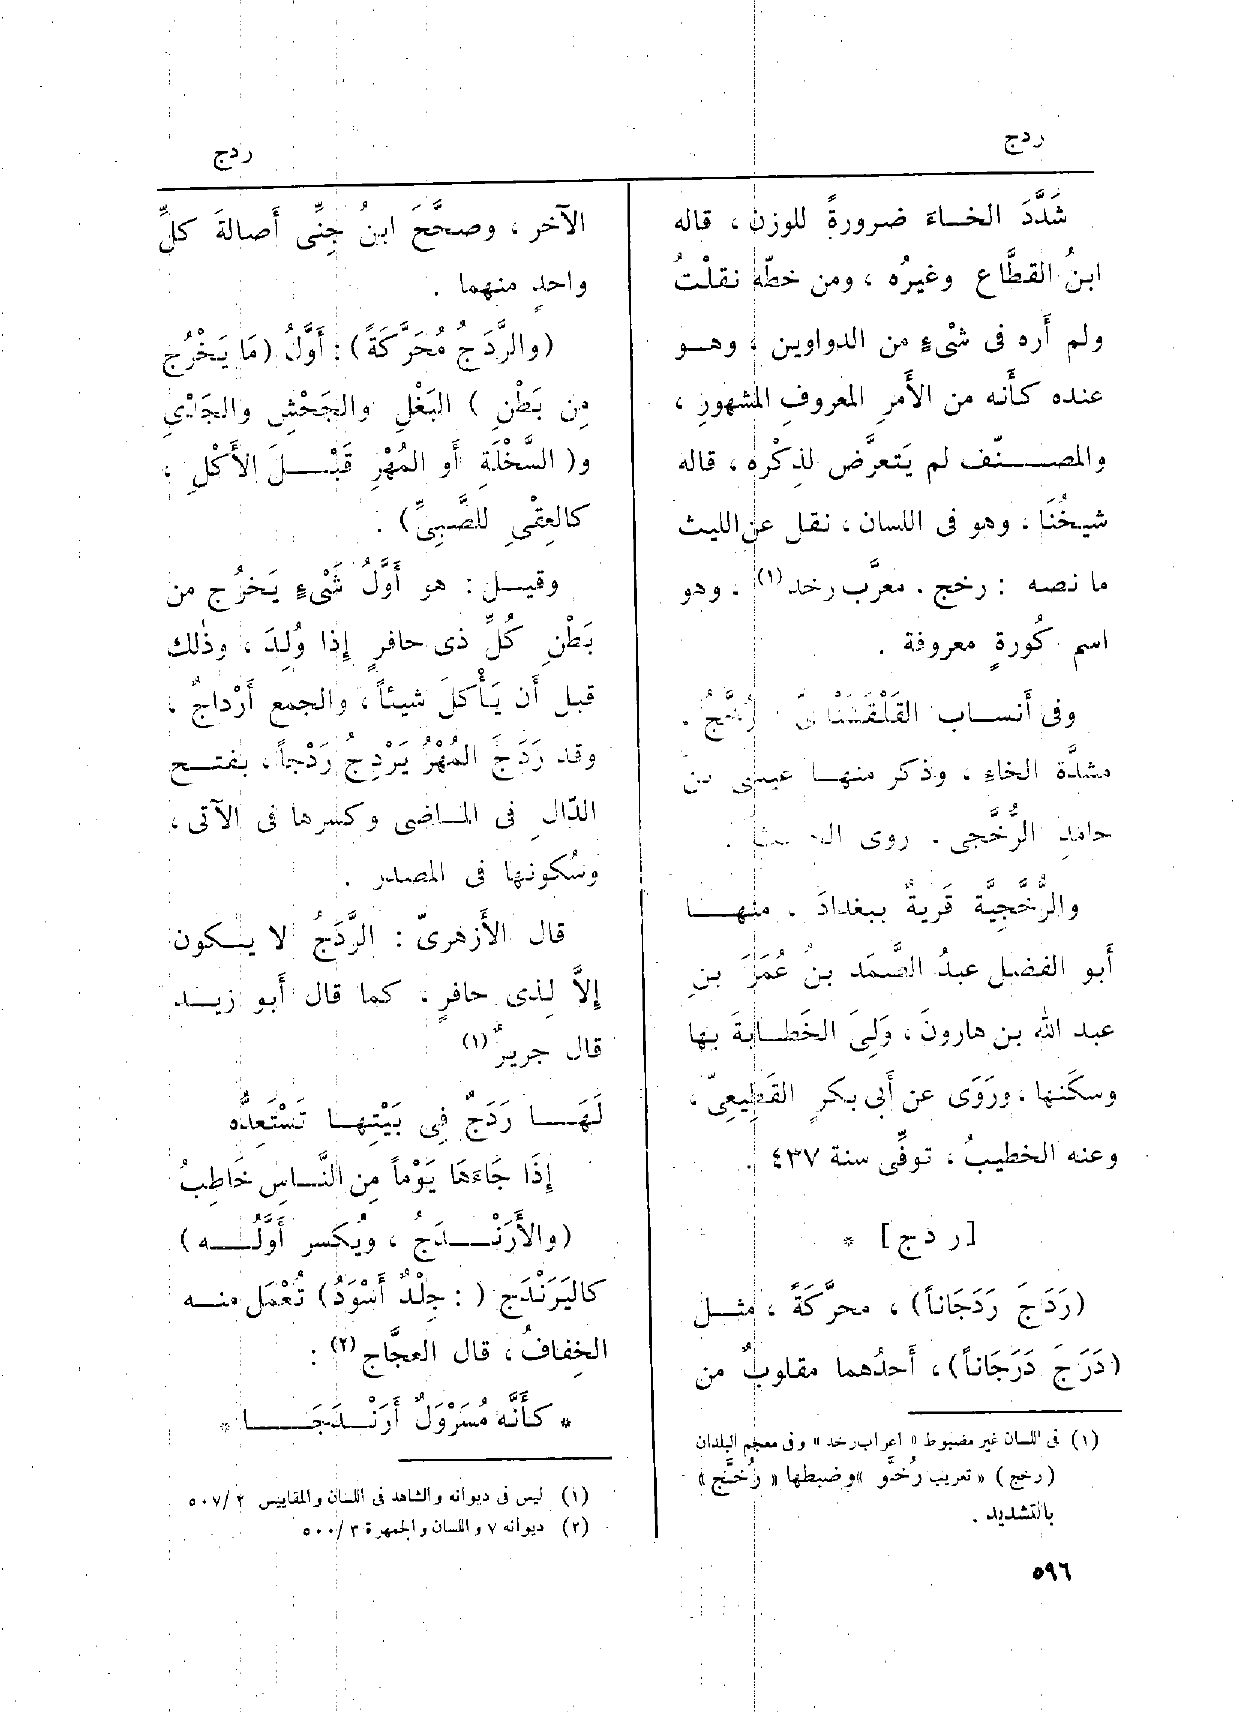 ردج
ردج
شَدَّدَ الخـاءَ ضرورةً للوزن ، قاله
ابنُ القطَّاع وغيرُه ، ومن خطّه نقلْتُ
ولم أَره فى شىْءٍ من الدواوين ، وهـو
عنده كأَنه من الأَمرِ المعروفِ المشهورِ ،
والمصـنّف لم يَتعرَّض لذِكْره ، قاله
شيخُنَا . وهو فى اللسان ، نقل عن الليث
ما نصه : رخج . معرَّب رخد (١) ، وهو
اسم كُورةٍ معروفة .
وفى أَنسـاب القَلْقَشَنْدِىّ : رُخَّج .
مشدَّة الخاءِ ، وذكر منهـا عيسى بن
حامدِ الرُّخَّجى . روى
والرُّخَّجيَّة قريةٌ ببغدادَ . منهـا
أَبو الفضل عبدُ الصَّمَد بنُ عُمَرَ بنِ
عبد الله بن هارونَ ، وَلِىَ الخَطـابةَ بها
وسكَنها ، ورَوَى عن أَبى بكرٍ القَطِيعىّ ،
وعنه الخطيبُ ، توفِّى سنة ٤٣٧ .
[ ر د ج ] *
( رَدَجَ رَدَجَاناً ) ، محرَّكَةً ، مثـل
( دَرَجَ دَرَجَاناً ) ، أَحدُهما مقلوبٌ من
(١) فى اللسان غير مضبوط « اعراب رخد » وفى معجم البلدان
(رخج) « تعريب رُخَّو » وضبطها « رُخَّج »
بالتشديد .
٥٩٦
الآخر ، وصحَّحَ ابنُ جِنِّى أَصالةَ كلِّ
واحدٍ منهما .
( والرَّدَجُ مُحَرَّكَةً ) : أَوَّلُ ( مَا يَخْرُج
مِن بَطْنِ ) البَغْلِ والجَحْشِ والجَدْىِ
و( السَّخْلَةِ أَو المُهْرِ قَبْـلَ الأَكْلِ ،
كالعِقْىِ للصَّبِىِّ ) .
وقيـل : هو أَوَّلُ شَىْءٍ يَخرُج من
بَطْنِ كُلِّ ذى حافرٍ إِذا وُلِدَ ، وذٰلك
قبل أَن يَأْكلَ شيئاً ، والجمع أَرْداجٌ ،
وقد رَدَجَ المُهْرُ يَرْدِجُ رَدْجاً ، بفتـح
الدّالِ فى المـاضى وكسرها فى الآتى ،
وسُكونها فى المصدر .
قال الأَزهرىّ : الرَّدَجُ لا يـكون
إِلاَّ لِذى حافرٍ ، كما قال أَبو زيـد
قال جريرٌ (١)
لَهَـا رَدَجٌ فِى بَيْتِهـا تَسْتَعِدُّه
إِذَا جَاءَهَا يَوْماً مِن النَّـاسِ خَاطِبُ
( والأَرَنْـدَجُ ، ويُكسر أَوَّلُـه )
كاليَرَنْدَج ( : جِلْدٌ أَسْوَدُ ) تُعْمَل منـه
الخِفافُ ، قال العجَّاج (٢) :
* كأَنَّه مُسَرْوَلٌ أَرَنْـدَجَـا *
(١) ليس فى ديوانه والشاهد فى اللسان والمقاييس ٢ / ٥٠٧
(٢) ديوانه ٧ واللسان والجمهرة ٣ / ٥٠٠